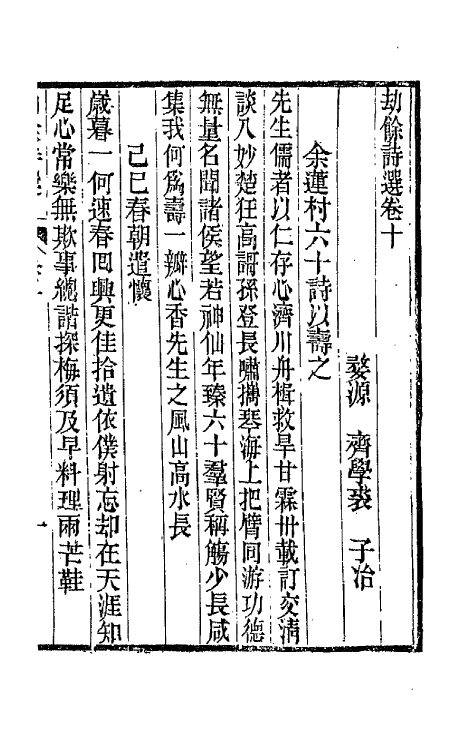 劫餘詩選卷十
婺源 齊學裘 子冶
余蓮村六十詩以壽之
先生儒者以仁存心濟川舟楫救旱甘霖卅載訂交清
談入妙楚狂高謌孫登長嘯攜琴海上把臂同游功德
無量名聞諸侯望若神仙年臻六十羣賢稱觴少長咸
集我何爲壽一瓣心香先生之風山高水長
己巳春朝遣懷
歲暮一何速春囘興更佳拾遺依僕射忘却在天涯知
足心常樂無欺事總諧探梅須及早料理兩芒鞋
一